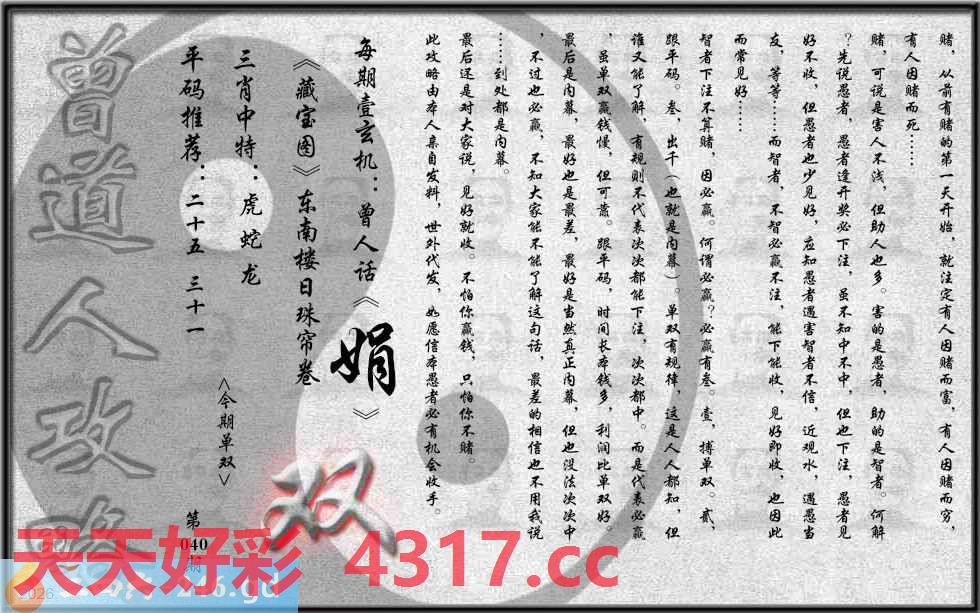 赌，从前有赌的第一天开始，就注定有人因赌而富，有人因赌而穷，
有人因赌而死……
赌，可说是害人不浅，但助人也多。害的是愚者，助的是智者。何解
？先说愚者，愚者逢开奖必下注，虽不知中不中，但也下注，愚者见
好不收，但愚者也少见好，应知愚者遇害智者不信，近观水，遇愚当
友，等等……而智者，不智必赢不注，能下能收，见好即收，也因此
而常见好……
智者下注不算赌，因必赢。何谓必赢？必赢有叁。壹，搏单双。贰，
跟平码。叁，出千（也就是内幕）。单双有规律，这是人人都知，但
谁又能了解，有规则不代表次次都能下注，次次都中。而是代表必赢
，虽单双赢钱慢，但可靠。跟平码，时间长本钱多，利润比单双好。
最后是内幕，最好也是最差，最好是当然真正内幕，但也没法次次中
，不过也必赢，不知大家能不能了解这句话，最差的相信也不用我说
……到处都是内幕。
最后还是对大家说，见好就收。不怕你赢钱，只怕你不赌。
此攻略由本人亲自发料，世外代发，如愿信本愚者必有机会收手。
每期壹玄机：曾人话《娟》
《藏宝图》东南楼日珠帘卷
三肖中特：虎蛇龙
平码推荐：二十五 三十一
<今期单双>
双
第
040
期
曾道人攻略
天天好彩 4317.cc
246.gd
2026